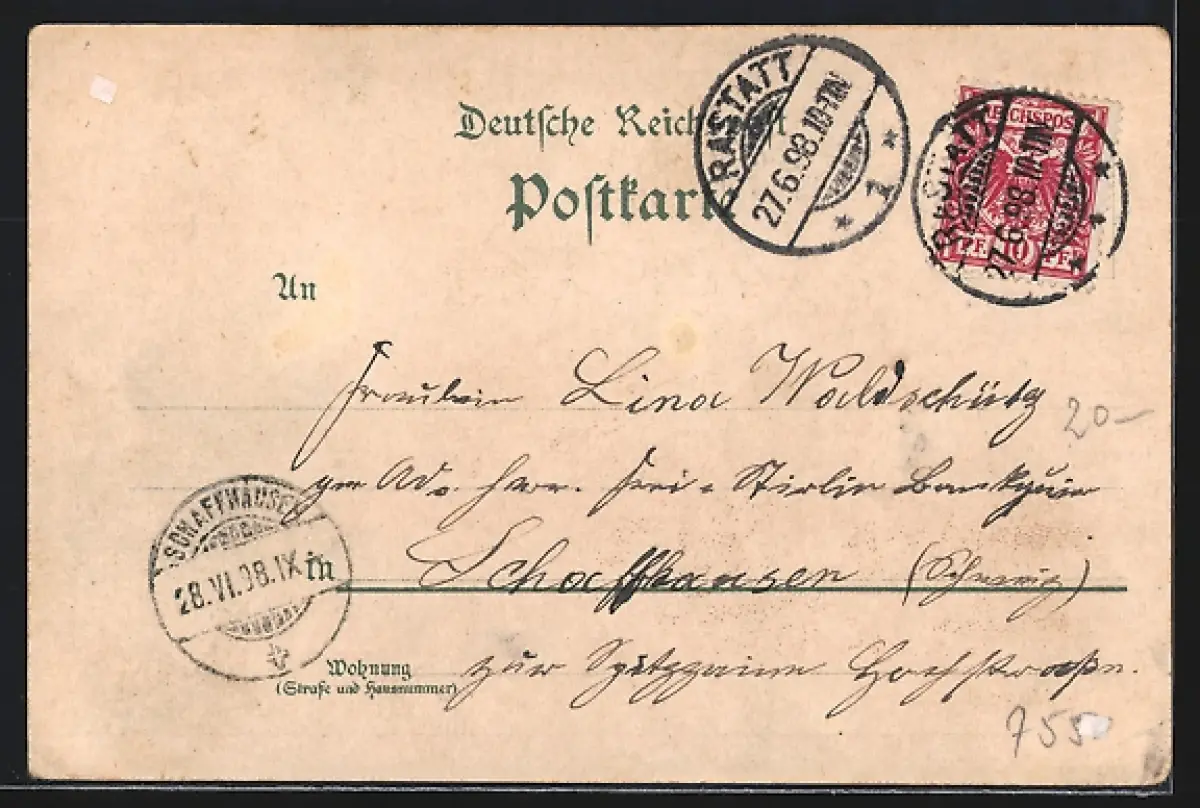 Deutsche Reichspost
Postkarte
RASTATT
27.6.98.10-11N
* 1 *
REICHSPOST
10 PF.
RASTATT
27.6.98.10-11N
An
Fräulein Lina Waldschütz
20-
Ad.
SCHAFFHAUSEN
28.VI.98.IX
in Schaffhausen (Schweiz)
Wohnung
(Straße und Hausnummer)
zur Hochstraße.
755